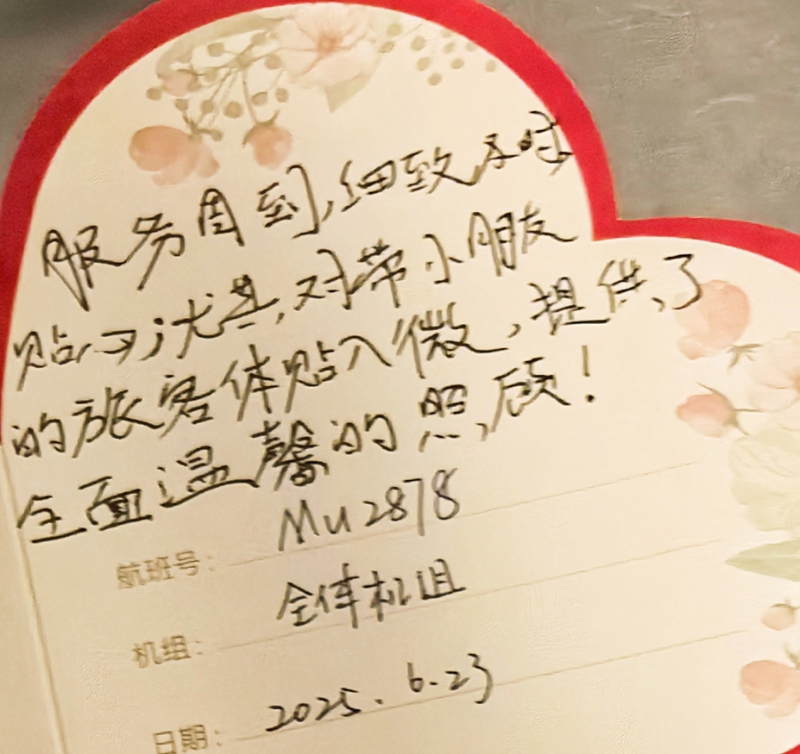 服务周到,细致及时
贴心;尤其,对带小朋友
的旅客体贴入微,提供了
全面温馨的照顾!
航班号: MU2878
机组: 全体机组
日期: 2025.6.23